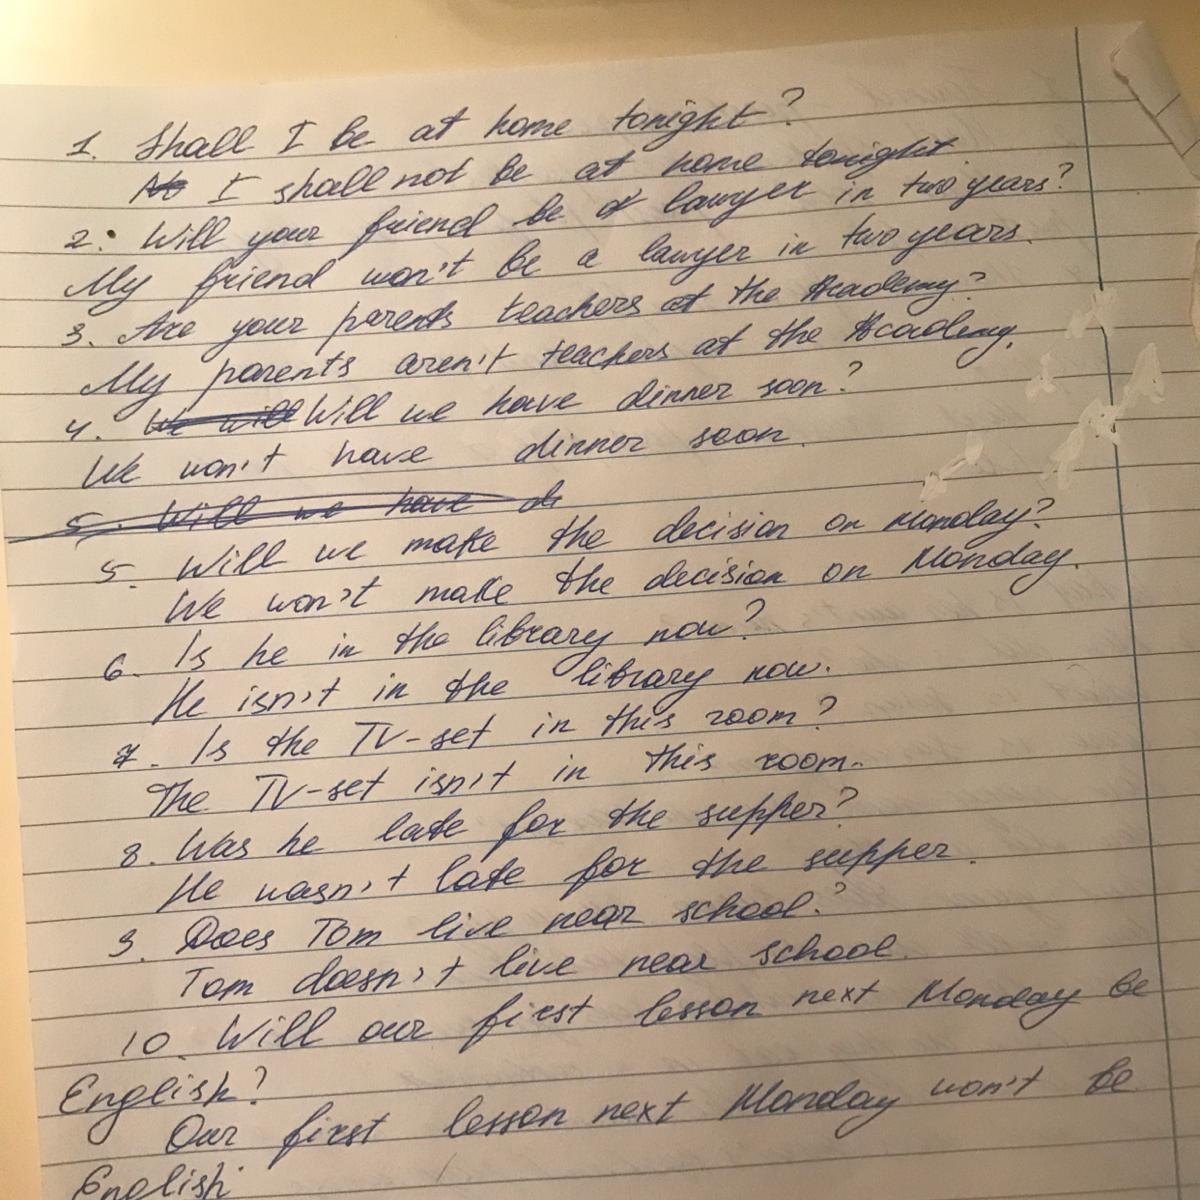 1. Shall I be at home tonight?
No I shall not be at home tonight
2. Will your friend be a lawyer in two years?
My friend won't be a lawyer in two years.
3. Are your parents teachers at the Academy?
My parents aren't teachers at the Academy.
4. We will Will we have dinner soon?
We won't have dinner soon.
5. Will we have di
5. Will we make the decision on Monday?
We won't make the decision on Monday.
6. Is he in the library now?
He isn't in the library now.
7. Is the TV-set in this room?
The TV-set isn't in this room.
8. Was he late for the supper?
He wasn't late for the supper.
9. Does Tom live near school?
Tom doesn't live near school.
10. Will our first lesson next Monday be
English?
Our first lesson next Monday won't be
English.